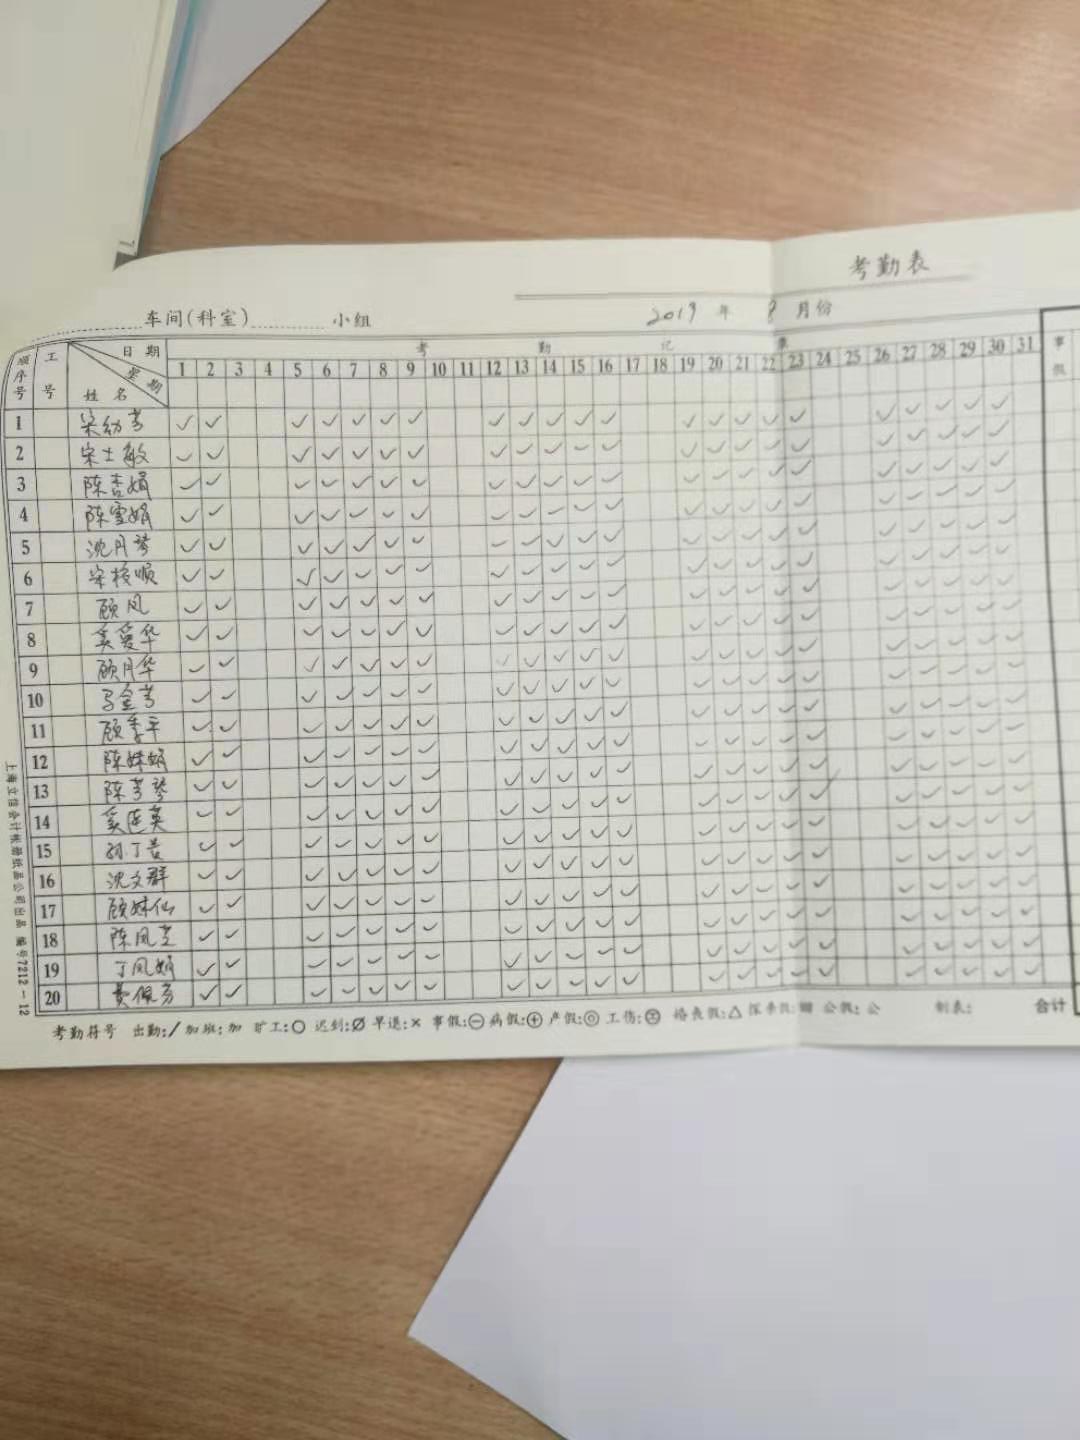 考勤表
车间(科室) 小组 2019 年 8 月份
顺序号 工号 日期 星期 姓名 考勤记录 事假
1 2 3 4 5 6 7 8 9 10 11 12 13 14 15 16 17 18 19 20 21 22 23 24 25 26 27 28 29 30 31
1 宋幼芳 ✓ ✓ ✓ ✓ ✓ ✓ ✓ ✓ ✓ ✓ ✓ ✓ ✓ ✓ ✓ ✓ ✓ ✓ ✓ ✓ ✓ ✓
2 宋士敏 ✓ ✓ ✓ ✓ ✓ ✓ ✓ ✓ ✓ ✓ ✓ ✓ ✓ ✓ ✓ ✓ ✓ ✓ ✓ ✓ ✓ ✓
3 陈杏娟 ✓ ✓ ✓ ✓ ✓ ✓ ✓ ✓ ✓ ✓ ✓ ✓ ✓ ✓ ✓ ✓ ✓ ✓ ✓ ✓ ✓ ✓
4 陈雪娟 ✓ ✓ ✓ ✓ ✓ ✓ ✓ ✓ ✓ ✓ ✓ ✓ ✓ ✓ ✓ ✓ ✓ ✓ ✓ ✓ ✓ ✓
5 沈月琴 ✓ ✓ ✓ ✓ ✓ ✓ ✓ ✓ ✓ ✓ ✓ ✓ ✓ ✓ ✓ ✓ ✓ ✓ ✓ ✓ ✓ ✓
6 宋 顺 ✓ ✓ ✓ ✓ ✓ ✓ ✓ ✓ ✓ ✓ ✓ ✓ ✓ ✓ ✓ ✓ ✓ ✓ ✓ ✓ ✓ ✓
7 顾凤 ✓ ✓ ✓ ✓ ✓ ✓ ✓ ✓ ✓ ✓ ✓ ✓ ✓ ✓ ✓ ✓ ✓ ✓ ✓ ✓ ✓ ✓
8 奚爱华 ✓ ✓ ✓ ✓ ✓ ✓ ✓ ✓ ✓ ✓ ✓ ✓ ✓ ✓ ✓ ✓ ✓ ✓ ✓ ✓ ✓ ✓
9 顾月华 ✓ ✓ ✓ ✓ ✓ ✓ ✓ ✓ ✓ ✓ ✓ ✓ ✓ ✓ ✓ ✓ ✓ ✓ ✓ ✓ ✓ ✓
10 马金芳 ✓ ✓ ✓ ✓ ✓ ✓ ✓ ✓ ✓ ✓ ✓ ✓ ✓ ✓ ✓ ✓ ✓ ✓ ✓ ✓ ✓ ✓
11 顾秀平 ✓ ✓ ✓ ✓ ✓ ✓ ✓ ✓ ✓ ✓ ✓ ✓ ✓ ✓ ✓ ✓ ✓ ✓ ✓ ✓ ✓ ✓
12 陈妹娟 ✓ ✓ ✓ ✓ ✓ ✓ ✓ ✓ ✓ ✓ ✓ ✓ ✓ ✓ ✓ ✓ ✓ ✓ ✓ ✓ ✓ ✓
13 陈秀琴 ✓ ✓ ✓ ✓ ✓ ✓ ✓ ✓ ✓ ✓ ✓ ✓ ✓ ✓ ✓ ✓ ✓ ✓ ✓ ✓ ✓ ✓
14 奚 英 ✓ ✓ ✓ ✓ ✓ ✓ ✓ ✓ ✓ ✓ ✓ ✓ ✓ ✓ ✓ ✓ ✓ ✓ ✓ ✓ ✓ ✓
15 孙丁 ✓ ✓ ✓ ✓ ✓ ✓ ✓ ✓ ✓ ✓ ✓ ✓ ✓ ✓ ✓ ✓ ✓ ✓ ✓ ✓ ✓ ✓
16 沈文群 ✓ ✓ ✓ ✓ ✓ ✓ ✓ ✓ ✓ ✓ ✓ ✓ ✓ ✓ ✓ ✓ ✓ ✓ ✓ ✓ ✓ ✓
17 顾妹仙 ✓ ✓ ✓ ✓ ✓ ✓ ✓ ✓ ✓ ✓ ✓ ✓ ✓ ✓ ✓ ✓ ✓ ✓ ✓ ✓ ✓ ✓
18 陈凤芝 ✓ ✓ ✓ ✓ ✓ ✓ ✓ ✓ ✓ ✓ ✓ ✓ ✓ ✓ ✓ ✓ ✓ ✓ ✓ ✓ ✓ ✓
19 丁凤娟 ✓ ✓ ✓ ✓ ✓ ✓ ✓ ✓ ✓ ✓ ✓ ✓ ✓ ✓ ✓ ✓ ✓ ✓ ✓ ✓ ✓ ✓
20 黄佩芳 ✓ ✓ ✓ ✓ ✓ ✓ ✓ ✓ ✓ ✓ ✓ ✓ ✓ ✓ ✓ ✓ ✓ ✓ ✓ ✓ ✓ ✓
考勤符号 出勤:/ 加班:加 旷工:○ 迟到:Ø 早退:× 事假:⊖ 病假:⊕ 产假:◎ 工伤: 婚丧假:△ 探亲假: 公假:公 制表: 合计
上海立信会计帐册纸品公司出品 编号7212-12